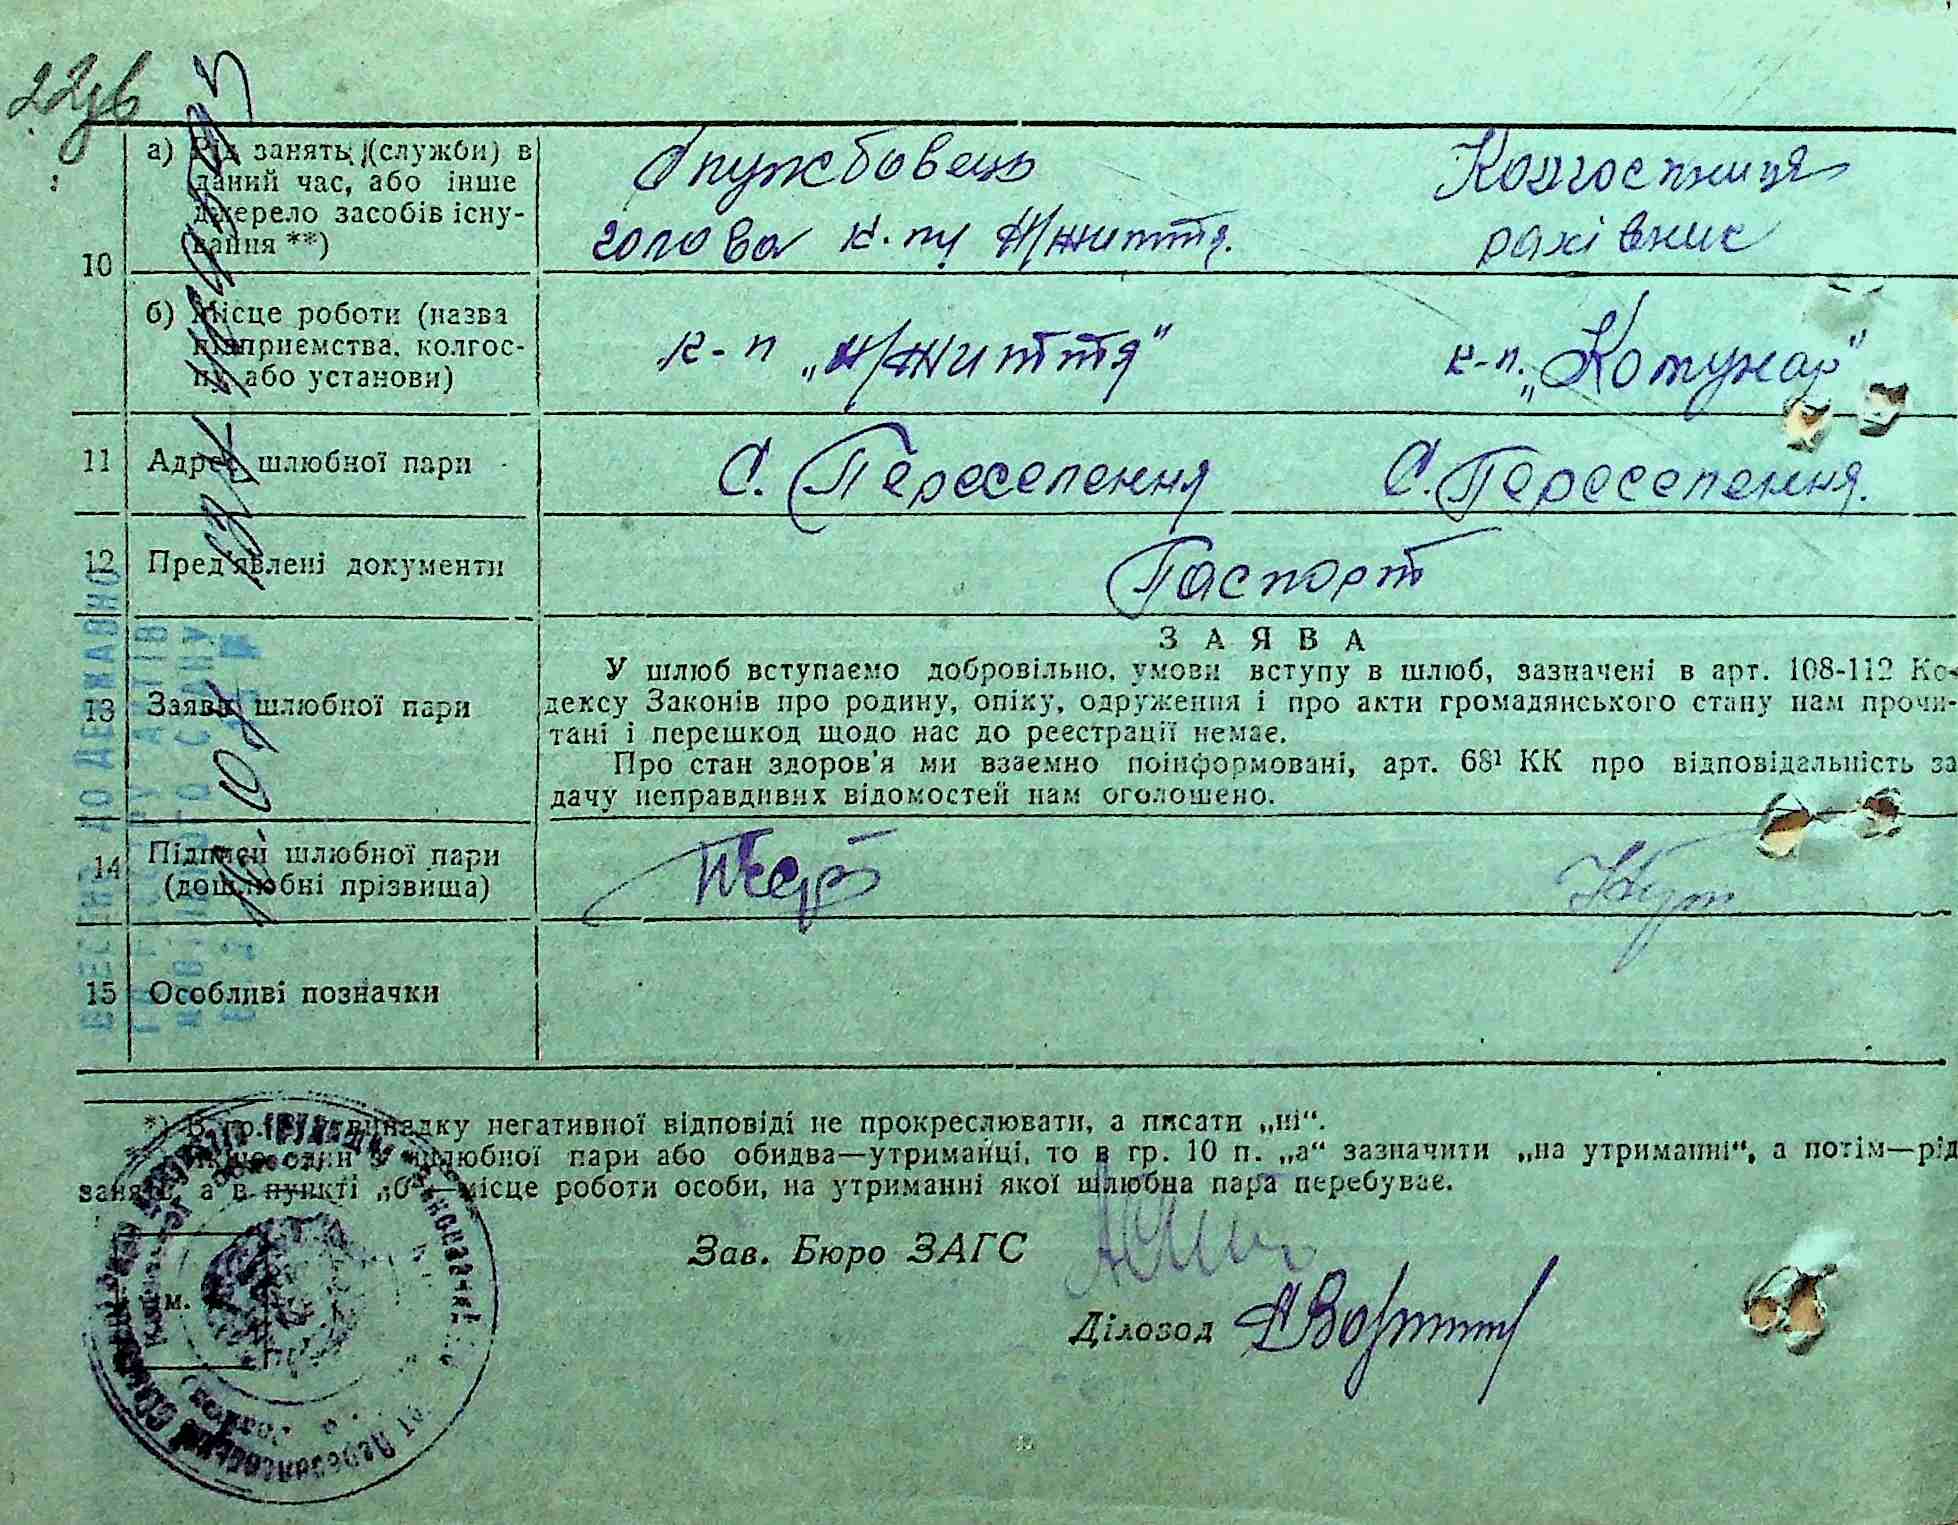 22
10
а) Рід занять (служби) в
даний час, або інше
джерело засобів існу-
вання **)
Службовець
голова к.пу Н/життя.
Колгоспниця
рахівник
б) Місце роботи (назва
підприємства, колгос-
пу, або установи)
к-п „Н/життя"
к-п. „Комунар"
11 Адрес шлюбної пари
С. Переселення
С. Переселення.
12 Пред'явлені документи
Паспорт
13 Заява шлюбної пари
ЗАЯВА
У шлюб вступаємо добровільно, умови вступу в шлюб, зазначені в арт. 108-112 Ко-
дексу Законів про родину, опіку, одруження і про акти громадянського стану нам прочи-
тані і перешкод щодо нас до реєстрації немає.
Про стан здоров'я ми взаємно поінформовані, арт. 68¹ КК про відповідальність за
дачу неправдивих відомостей нам оголошено.
14 Підписи шлюбної пари
(дошлюбні прізвища)
15 Особливі позначки
ВНЕСЕНО ДО ДЕРЖАВНО
ГО РЕЄСТРУ АКТІВ
ЦИВІЛЬНОГО СТАНУ
*) В гр. випадку негативної відповіді не прокреслювати, а писати „ні".
Якщо один з шлюбної пари або обидва—утриманці, то в гр. 10 п. „а" зазначити „на утриманні", а потім—рід
занять, а в пункті „б"—місце роботи особи, на утриманні якої шлюбна пара перебуває.
Зав. Бюро ЗАГС
м.
Діловод